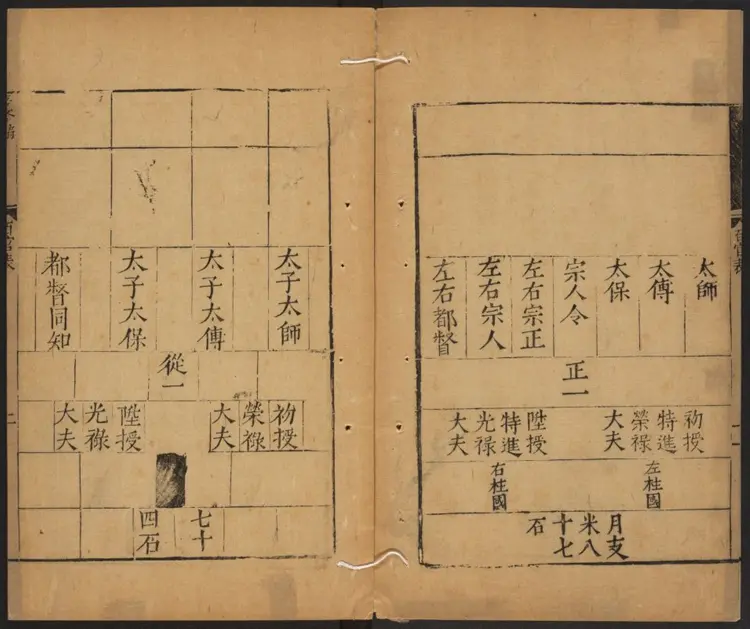 太師
太傅
太保
宗人令
左右宗正
左右宗人
左右都督
正一
初授
特進
榮祿
大夫
陞授
特進
光祿
大夫
左柱國
右柱國
月支
米八
十七
石
太子太師
太子太傅
太子太保
都督同知
從一
初授
榮祿
大夫
陞授
光祿
大夫
七十
四石
百官表
二